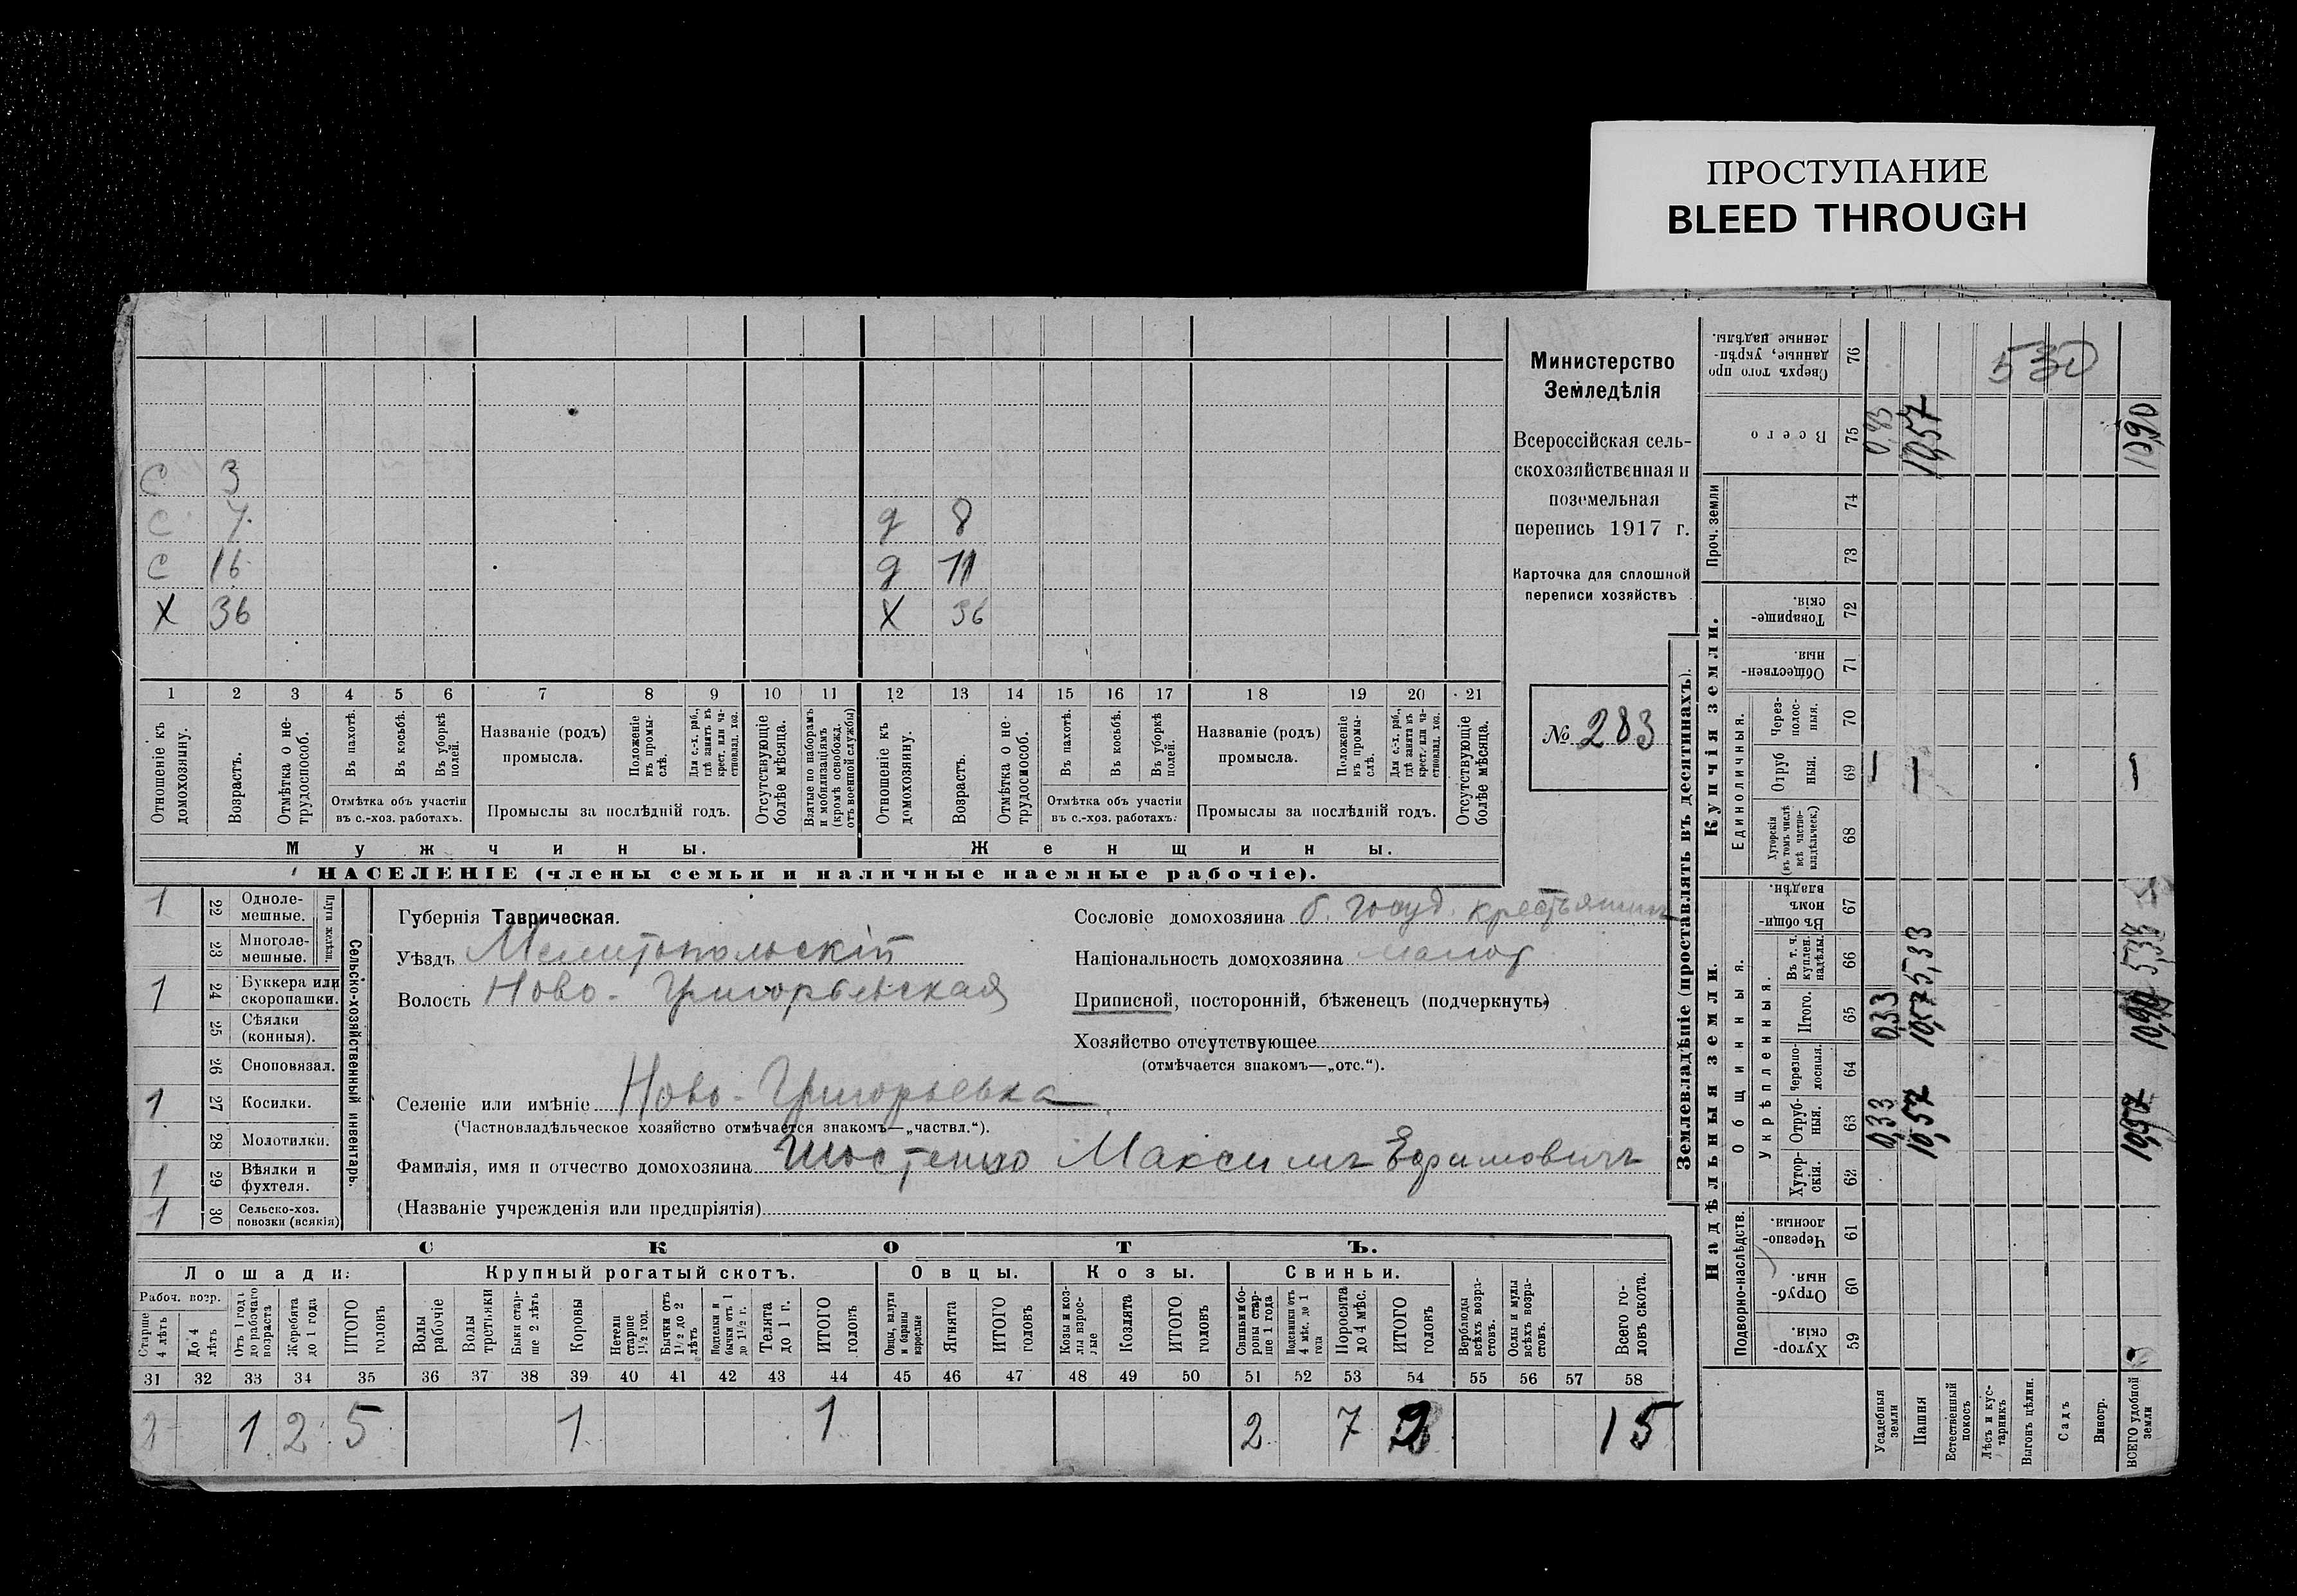 ПРОСТУПАНИЕ
BLEED THROUGH
С 3
С 7
С 16
Х 36
д 8
д 11
Х 36
1 2 3 4 5 6 7 8 9 10 11 12 13 14 15 16 17 18 19 20 21
Отношеніе къ домохозяину.
Возрастъ.
Отмѣтка о нетрудоспособ.
Въ пахотѣ.
Въ косьбѣ.
Въ уборкѣ полей.
Отмѣтка объ участіи
въ с.-хоз. работахъ.
Названіе (родъ)
промысла.
Положеніе въ промыслѣ.
Для с.-х. раб., гдѣ занятъ въ крест. или частновлад. хоз.
Промыслы за послѣдній годъ.
Отсутствующіе болѣе мѣсяца.
Взятые по наборамъ и мобилизаціямъ (кромѣ освобожд. отъ военной службы)
Отношеніе къ домохозяину.
Возрастъ.
Отмѣтка о нетрудоспособ.
Въ пахотѣ.
Въ косьбѣ.
Въ уборкѣ полей.
Отмѣтка объ участіи
въ с.-хоз. работахъ.
Названіе (родъ)
промысла.
Положеніе въ промыслѣ.
Для с.-х. раб., гдѣ занята въ крест. или частновлад. хоз.
Промыслы за послѣдній годъ.
Отсутствующіе болѣе мѣсяца.
Мужчины.
Женщины.
НАСЕЛЕНІЕ (члены семьи и наличные наемные рабочіе).
Министерство
Земледѣлія
Всероссійская сель-
скохозяйственная и
поземельная
перепись 1917 г.
Карточка для сплошной
переписи хозяйствъ
№ 283
1 22 Одноле-
мешные.
23 Многоле-
мешные.
Плуги желѣзн.
1 24 Буккера или
скоропашки.
25 Сѣялки
(конныя).
26 Сноповязал.
1 27 Косилки.
28 Молотилки.
1 29 Вѣялки и
фухтеля.
1 30 Сельско-хоз.
повозки (всякія)
Сельско-хозяйственный инвентарь.
Губернія Таврическая.
Уѣздъ Мелитопольскій
Волость Ново-Григорьевская
Селеніе или имѣніе Ново-Григорьевка
(Частновладѣльческое хозяйство отмѣчается знакомъ—„частвл.“).
Фамилія, имя и отчество домохозяина Шостенко Максимъ Ефимовичъ
(Названіе учрежденія или предпріятія)
Сословіе домохозяина б. госуд. крестьянин
Національность домохозяина малор
Приписной, посторонній, бѣженецъ (подчеркнуть)
Хозяйство отсутствующее
(отмѣчается знакомъ—„отс.“).
СКОТЪ.
Лошади:
Крупный рогатый скотъ.
Овцы.
Козы.
Свиньи.
Рабоч. возр.
Старше 4 лѣтъ
До 4 лѣтъ
Отъ 1 года до рабочаго возраста
Жеребята до 1 года
ИТОГО головъ
Волы рабочіе
Волы третьяки
Быки старше 2 лѣтъ
Коровы
Нетели старше 1½ год.
Бычки отъ 1½ до 2 лѣтъ
Подтелки и бычки отъ 1 до 1½ г.
Телята до 1 г.
ИТОГО головъ
Овцы, валухи и бараны взрослые
Ягнята
ИТОГО головъ
Козы и козлы взрослые
Козлята
ИТОГО головъ
Свиньи и боровы старше 1 года
Подсвинки отъ 4 мѣс. до 1 года
Поросята до 4 мѣс.
ИТОГО головъ
Верблюды всѣхъ возрастовъ.
Ослы и мулы всѣхъ возрастовъ.
Всего головъ скота.
31 32 33 34 35 36 37 38 39 40 41 42 43 44 45 46 47 48 49 50 51 52 53 54 55 56 57 58
2 1 2 5 1 1 2 7 9 15
Землевладѣніе (проставлять въ десятинахъ).
Купчія земли.
Надѣльныя земли.
Сверхъ того проданные, укрѣпленные надѣлы. 76
Всего 75
Проч. земли
74
73
Товарищескія. 72
Общественныя. 71
Единоличныя.
Черезполосныя. 70
Отрубныя. 69
Хуторскія (въ томъ числѣ всѣ частновладѣльческ.) 68
Общинныя.
Въ общинномъ владѣн. 67
Укрѣпленныя.
Въ т. ч. куплен. надѣлы. 66
Итого. 65
Черезполосныя. 64
Отрубныя. 63
Хуторскія. 62
Подворно-наслѣдств.
Черезполосныя. 61
Отрубныя. 60
Хуторскія. 59
Усадебныя земли
Пашня
Естественный покосъ
Лѣсъ и кустарникъ
Выгонъ цѣлин.
Садъ
Виногр.
ВСЕГО удобной земли
530
0,33
10,57
10,90
5,33
0,33
10,57
5,33
0,33
10,57